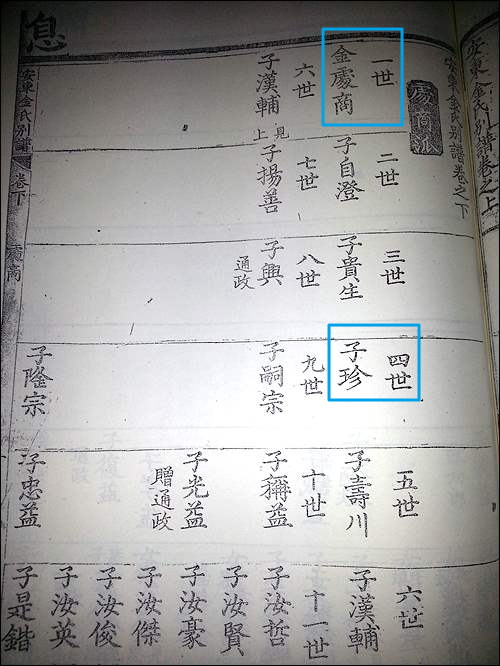 安東金氏別譜卷之上
安東金氏別譜卷之下
處商派
一世
金處商
六世
子漢輔
見上
二世
子自澄
七世
子揚善
三世
子貴生
八世
子興
通政
四世
子珍
九世
子嗣宗
子隆宗
五世
子壽川
十世
子稱益
子光益
贈通政
子忠益
六世
子漢輔
十一世
子汝哲
子汝賢
子汝豪
子汝傑
子汝俊
子汝英
子是鍇
息
安東金氏別譜
卷下
處商